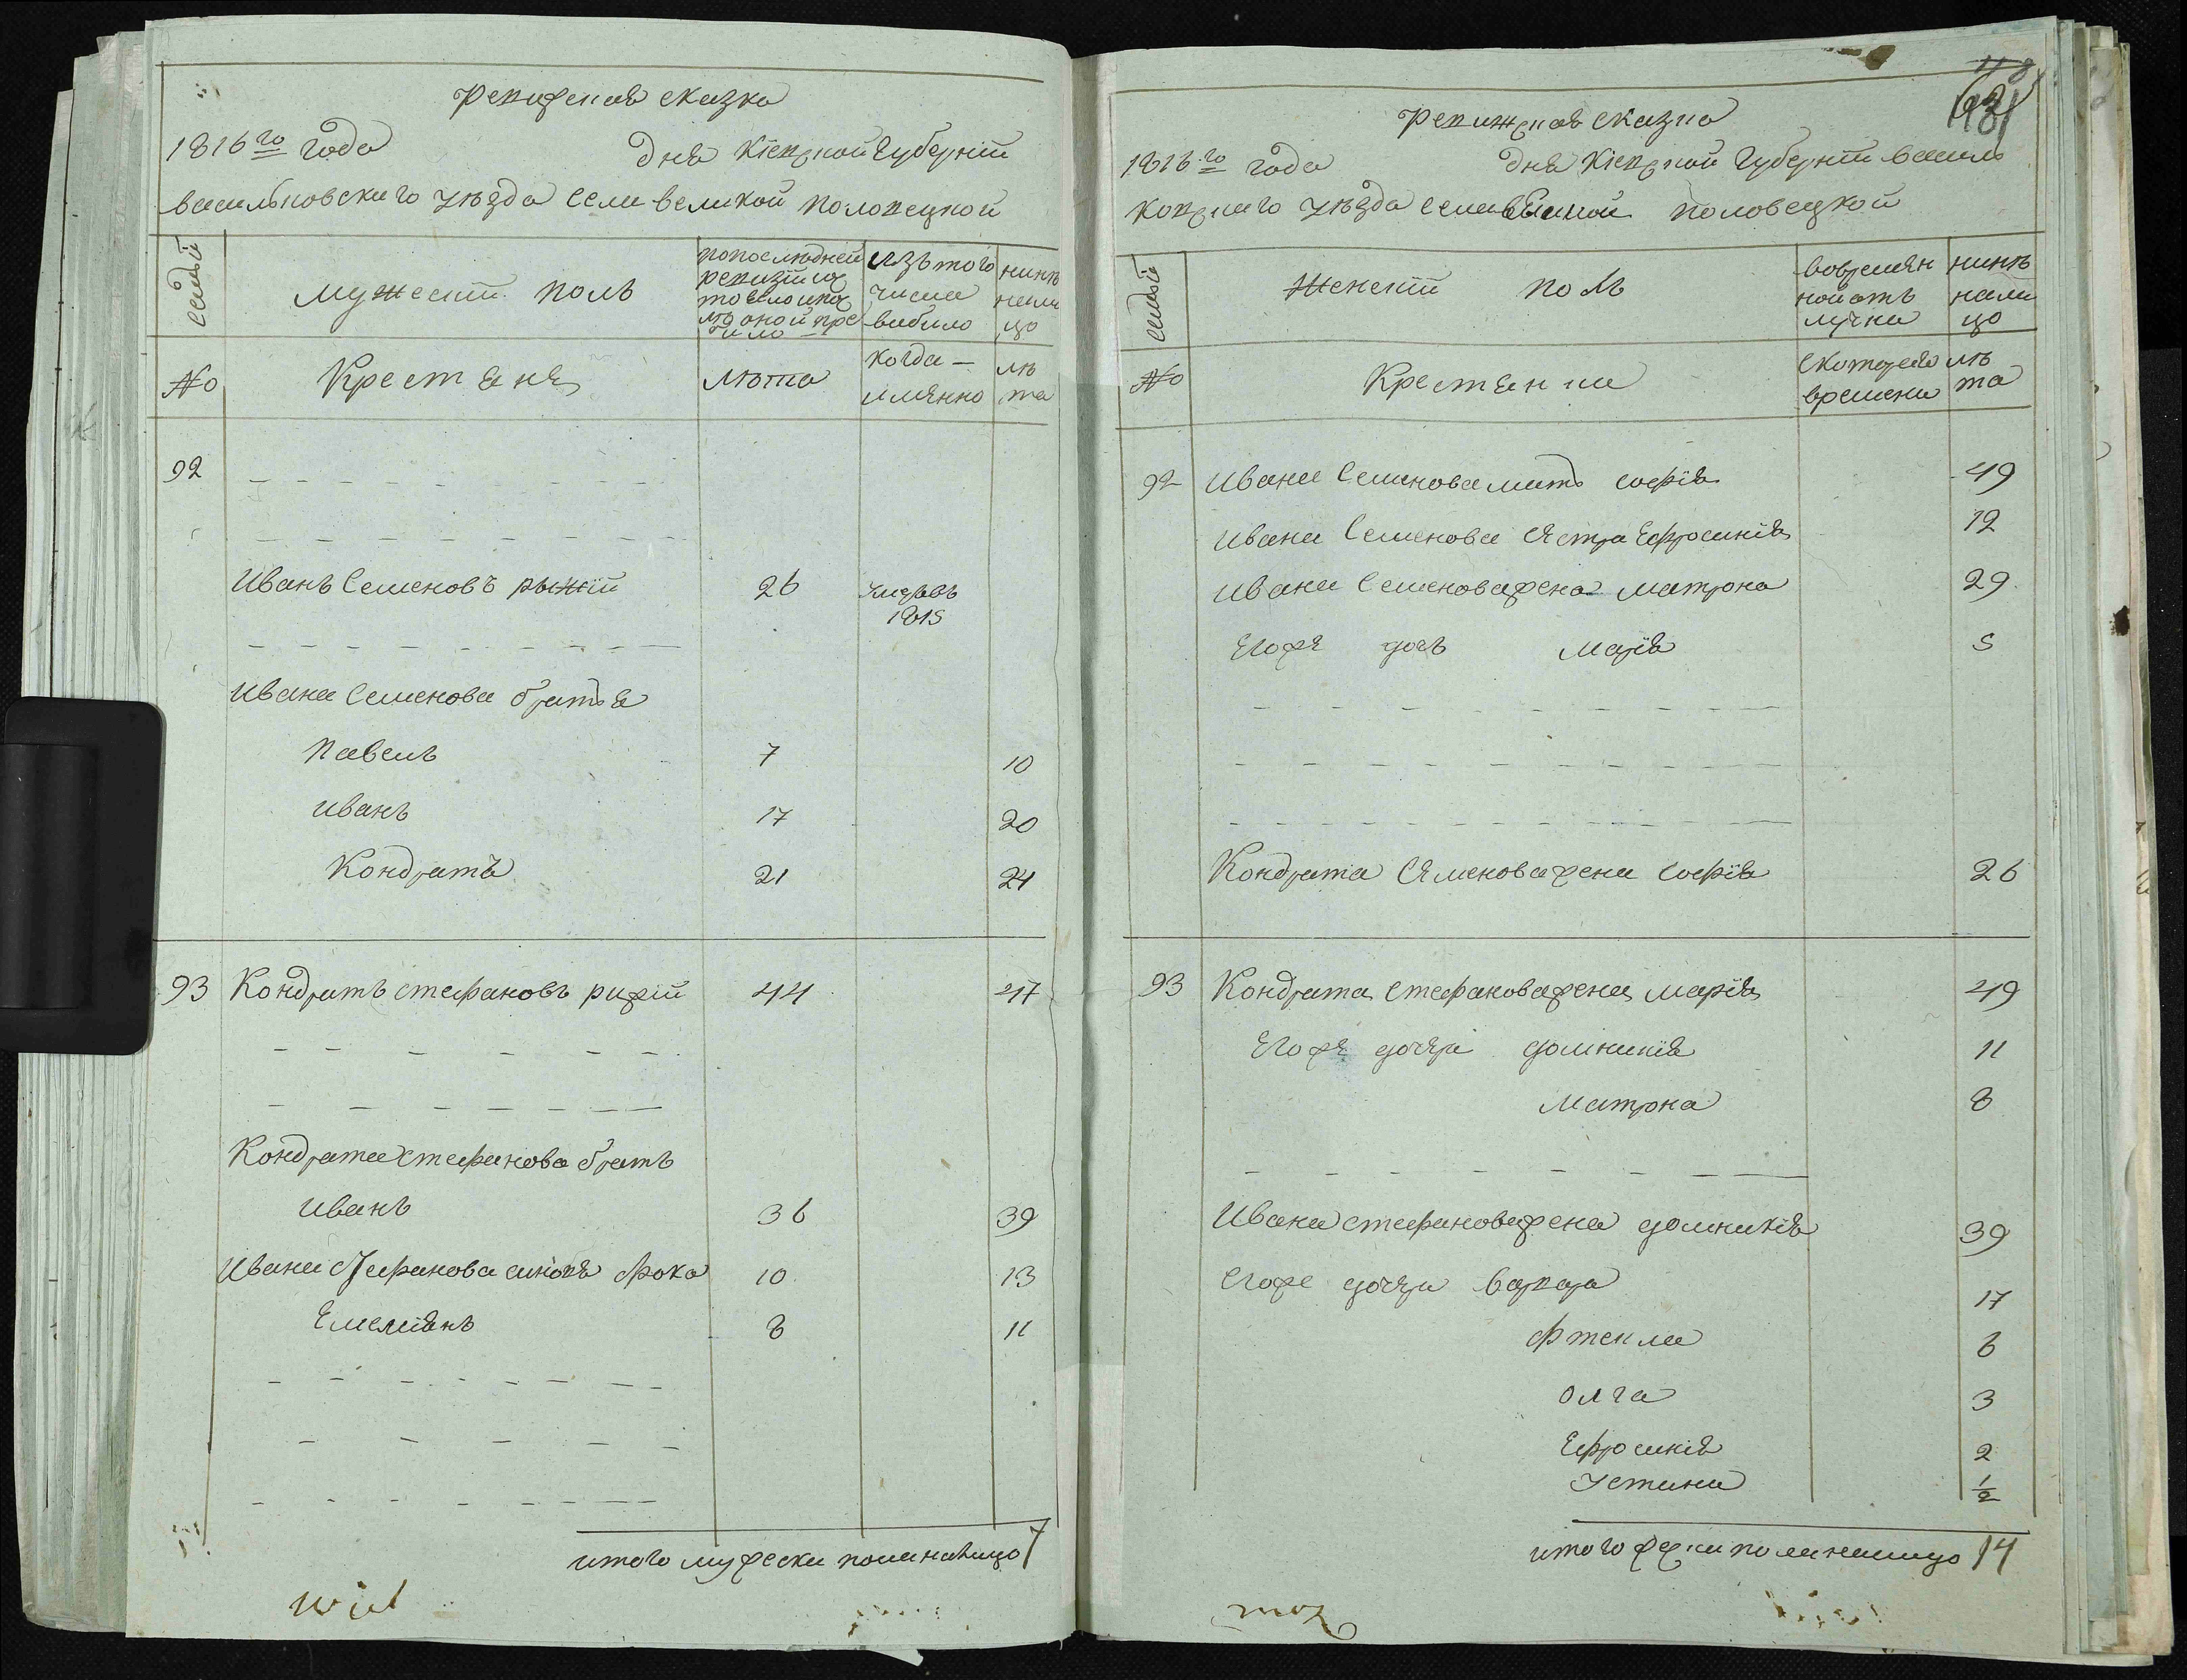 Ревизская сказка
1816го года дня Кіевской Губерніи
васильковскаго уѣзда села великой половецкой
семьи
мужескій полъ
по последней ревизіи состояло и после оной прибыло
изъ того числа выбыло
нинѣ налицо
№
Крестяня
лѣта
когда имянно
лѣта
92
Иванъ Семеновъ рыжій 26 умеръ 1815
Ивана Семенова братья
Павелъ 7 10
иванъ 17 20
Кондратъ 21 24
93 Кондратъ стефановъ рижій 44 47
Кондрата стефанова братъ
иванъ 36 39
Ивана Стефанова синовя Фока 10 13
Емеліянъ 8 11
итого мужеска пола налицо 7
118
181
Ревижская сказка
1816го года дня Кіевской Губерніи василь
ковскаго уѣзда села великой половецкой
семьи
Женскій полъ
во времянной отлучки
нинѣ налицо
№
Крестянки
с котораго времени
лѣта
92 Ивана Семенова мать софія 49
Ивана Семенова сястра Ефросинія 12
Ивана Семенова жена матрона 29
Егожя дочь марія 5
Кондрата Сяменова жена софія 26
93 Кондрата стефанова жена марія 49
Егожя дочяри домникія 11
Матрона 8
Ивана стефанова жена домникія 39
Егоже дочяри варвара 17
Фтекла 6
Олга 3
Ефросинія 2
Устина 1/2
итого женска пола налицо 14